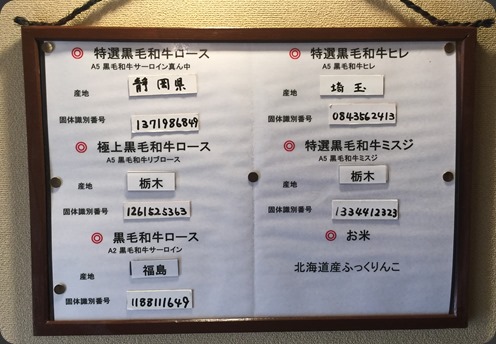 ◎ 特選黒毛和牛ロース
A5 黒毛和牛サーロイン真ん中
産地 静岡県
固体識別番号 1371986849
◎ 極上黒毛和牛ロース
A5 黒毛和牛リブロース
産地 栃木
固体識別番号 1261525363
◎ 黒毛和牛ロース
A2 黒毛和牛サーロイン
産地 福島
固体識別番号 1188111649
◎ 特選黒毛和牛ヒレ
A5 黒毛和牛ヒレ
産地 埼玉
固体識別番号 0843562413
◎ 特選黒毛和牛ミスジ
A5 黒毛和牛ミスジ
産地 栃木
固体識別番号 1334412323
◎ お米
北海道産ふっくりんこ